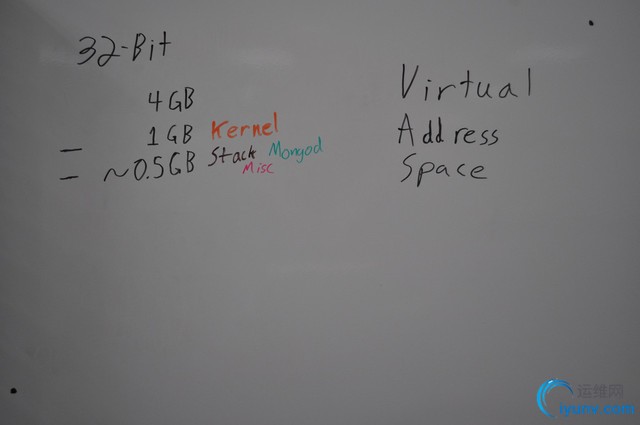 32-Bit
4GB
— 1GB Kernel
— ~0.5GB Stack Mongod
Misc
Virtual
Address
Space
运维网
iyunv.com